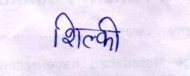 शिल्की